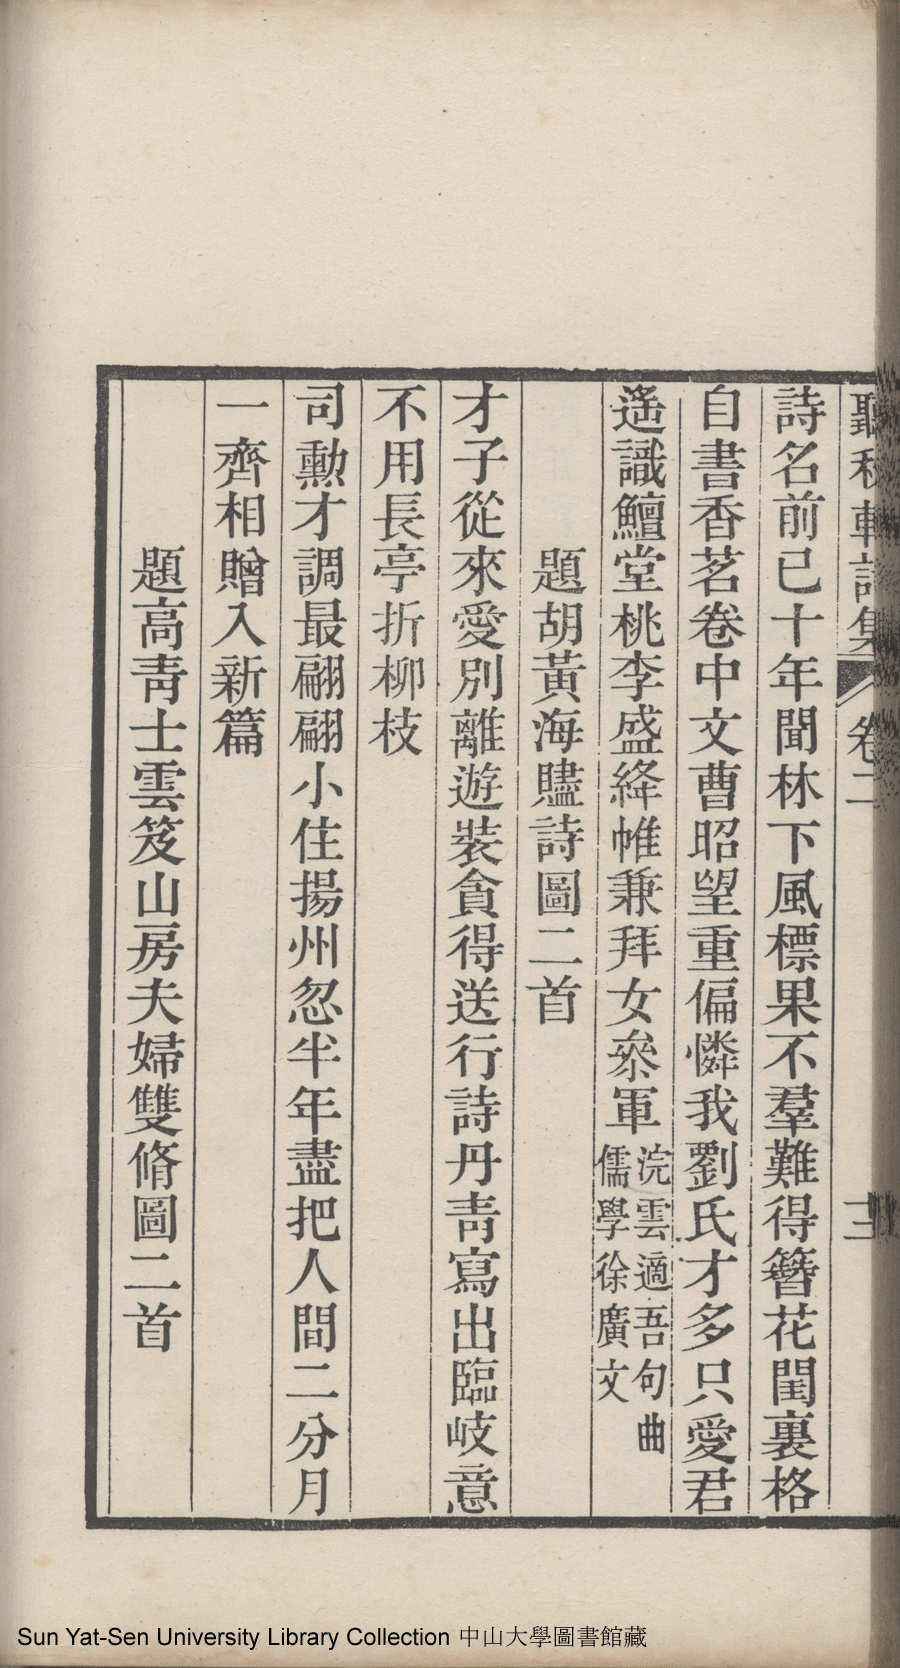 聽秋軒詩集 卷二 十三
詩名前已十年聞林下風標果不羣難得簪花閨裏格
自書香茗卷中文曹昭望重偏憐我劉氏才多只愛君
遙識鱣堂桃李盛絳帷兼拜女叅軍浣雲適吾句曲
儒學徐廣文
題胡黃海贐詩圖二首
才子從來愛別離遊裝貪得送行詩丹靑寫出臨岐意
不用長亭折柳枝
司勳才調最翩翩小住揚州忽半年盡把人間二分月
一齊相贈入新篇
題高靑士雲笈山房夫婦雙脩圖二首
Sun Yat-Sen University Library Collection 中山大學圖書館藏